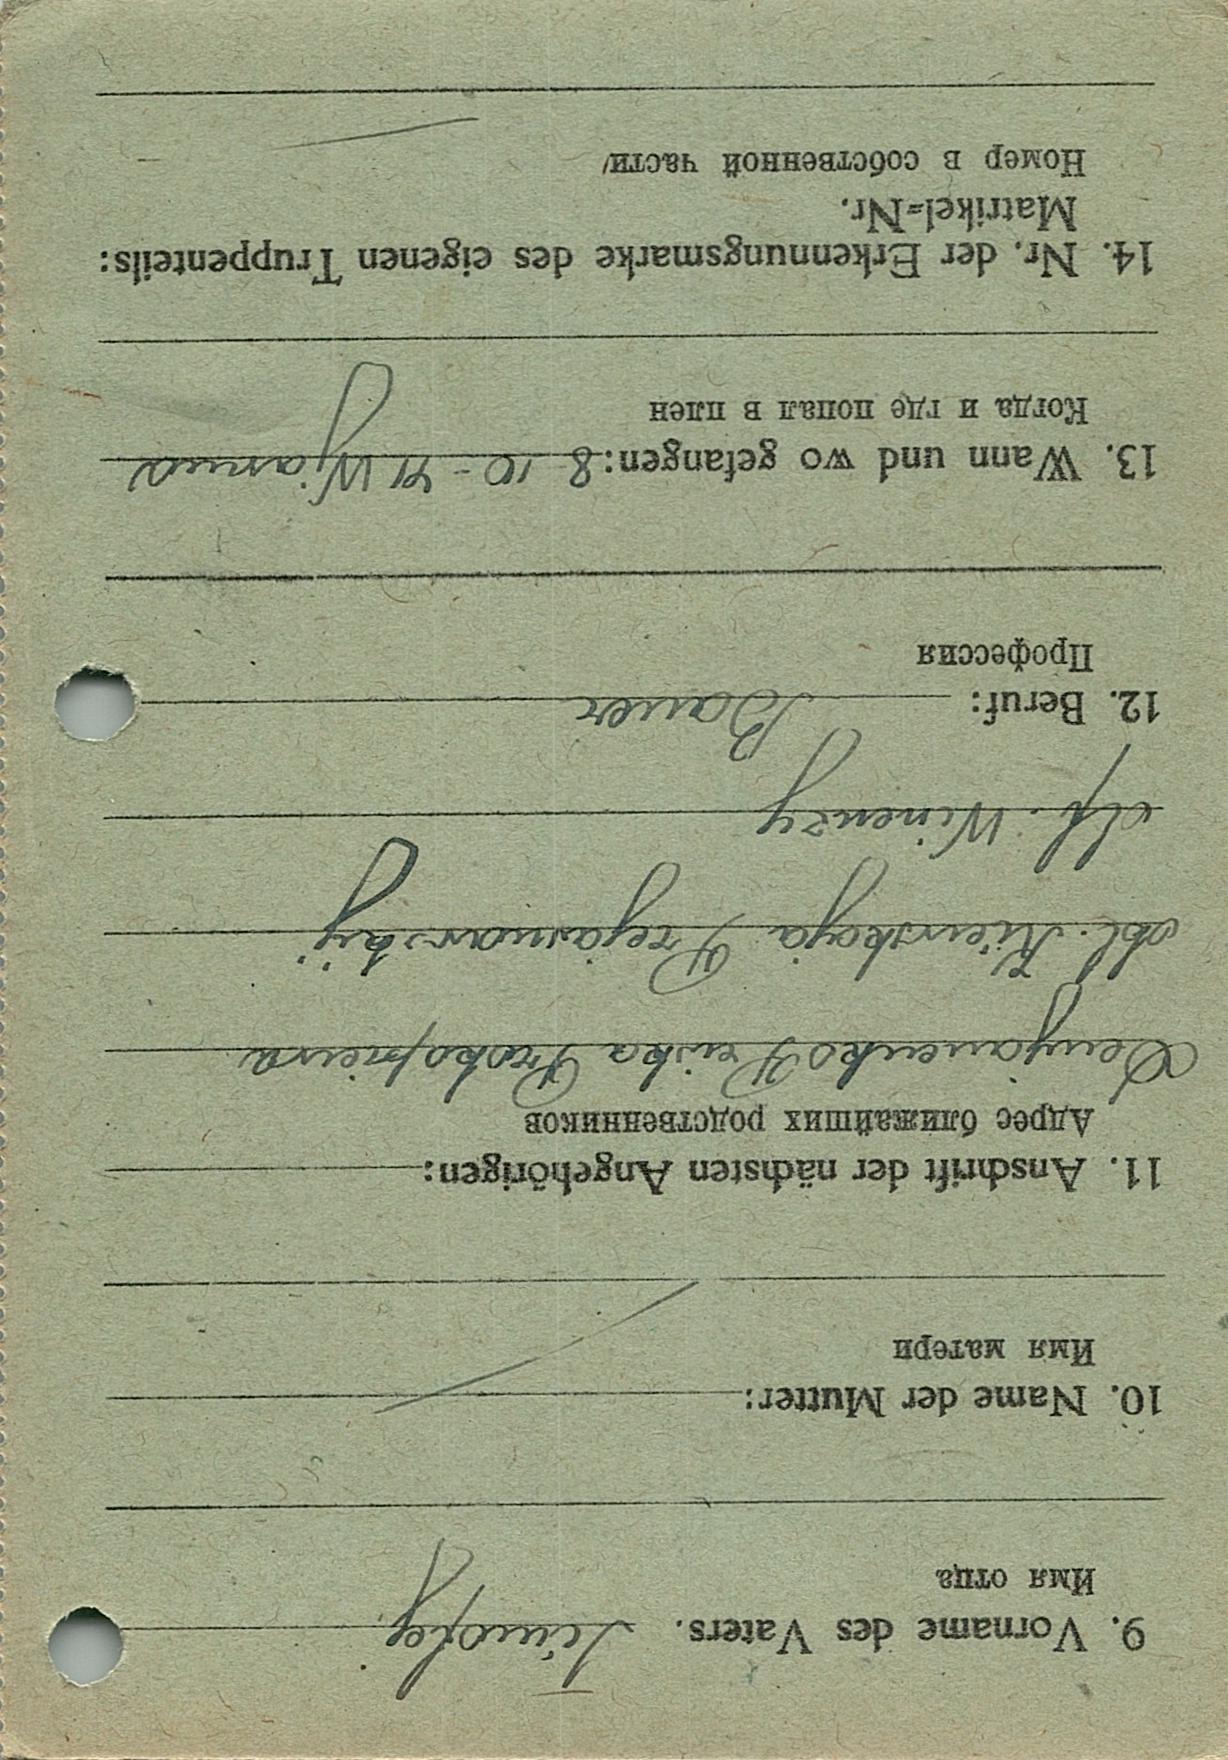 9. Vorname des Vaters. Timofej
Имя отца
10. Name der Mutter:
Имя матери
11. Anschrift der nächsten Angehörigen:
Адрес ближайших родственников
Demjanenko Prokopiewa
obl. Kiewskaja
Winenzy
12. Beruf: Bauer
Профессия
13. Wann und wo gefangen: 8 10-41 Wjasma
Когда и где попал в плен
14. Nr. der Erkennungsmarke des eigenen Truppenteils:
Matrikel=Nr.
Номер в собственной части